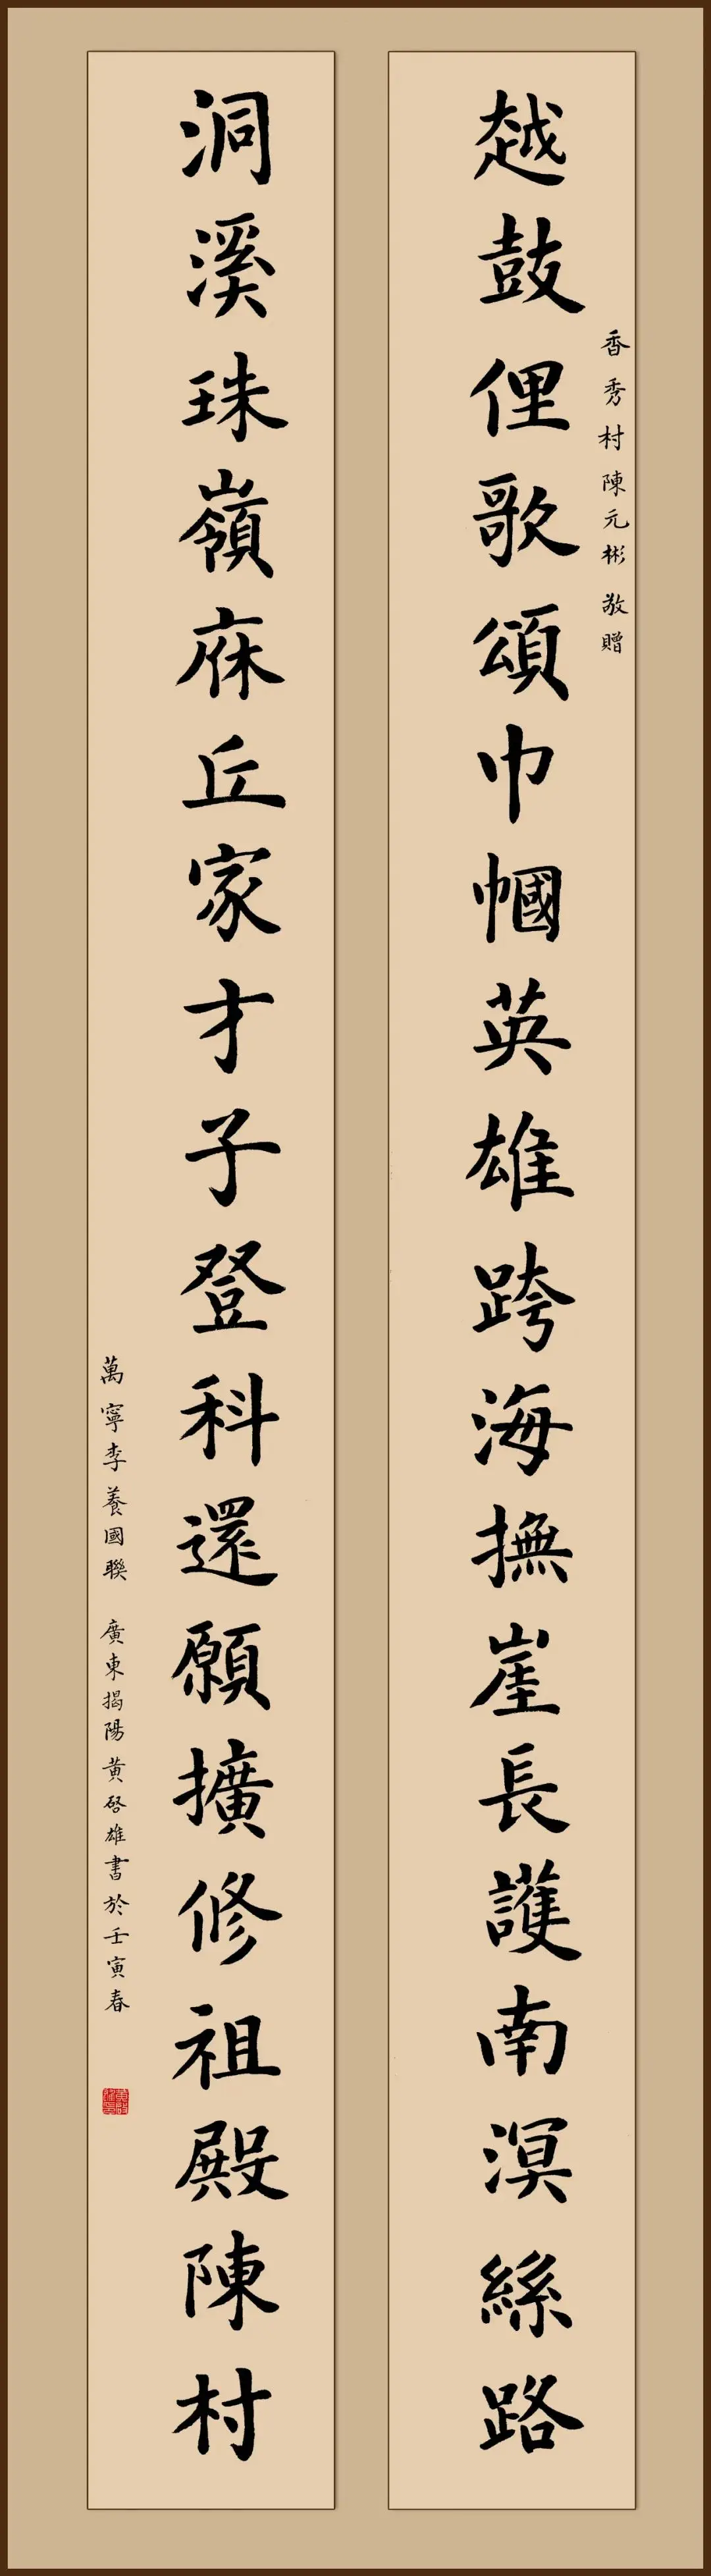 香秀村陳元彬敬贈
越鼓俚歌頌巾幗英雄跨海撫崖長護南溟絲路
洞溪珠嶺庥丘家才子登科還願擴修祖殿陳村
萬寧李養國聯 廣東揭陽黄啓雄書於壬寅春